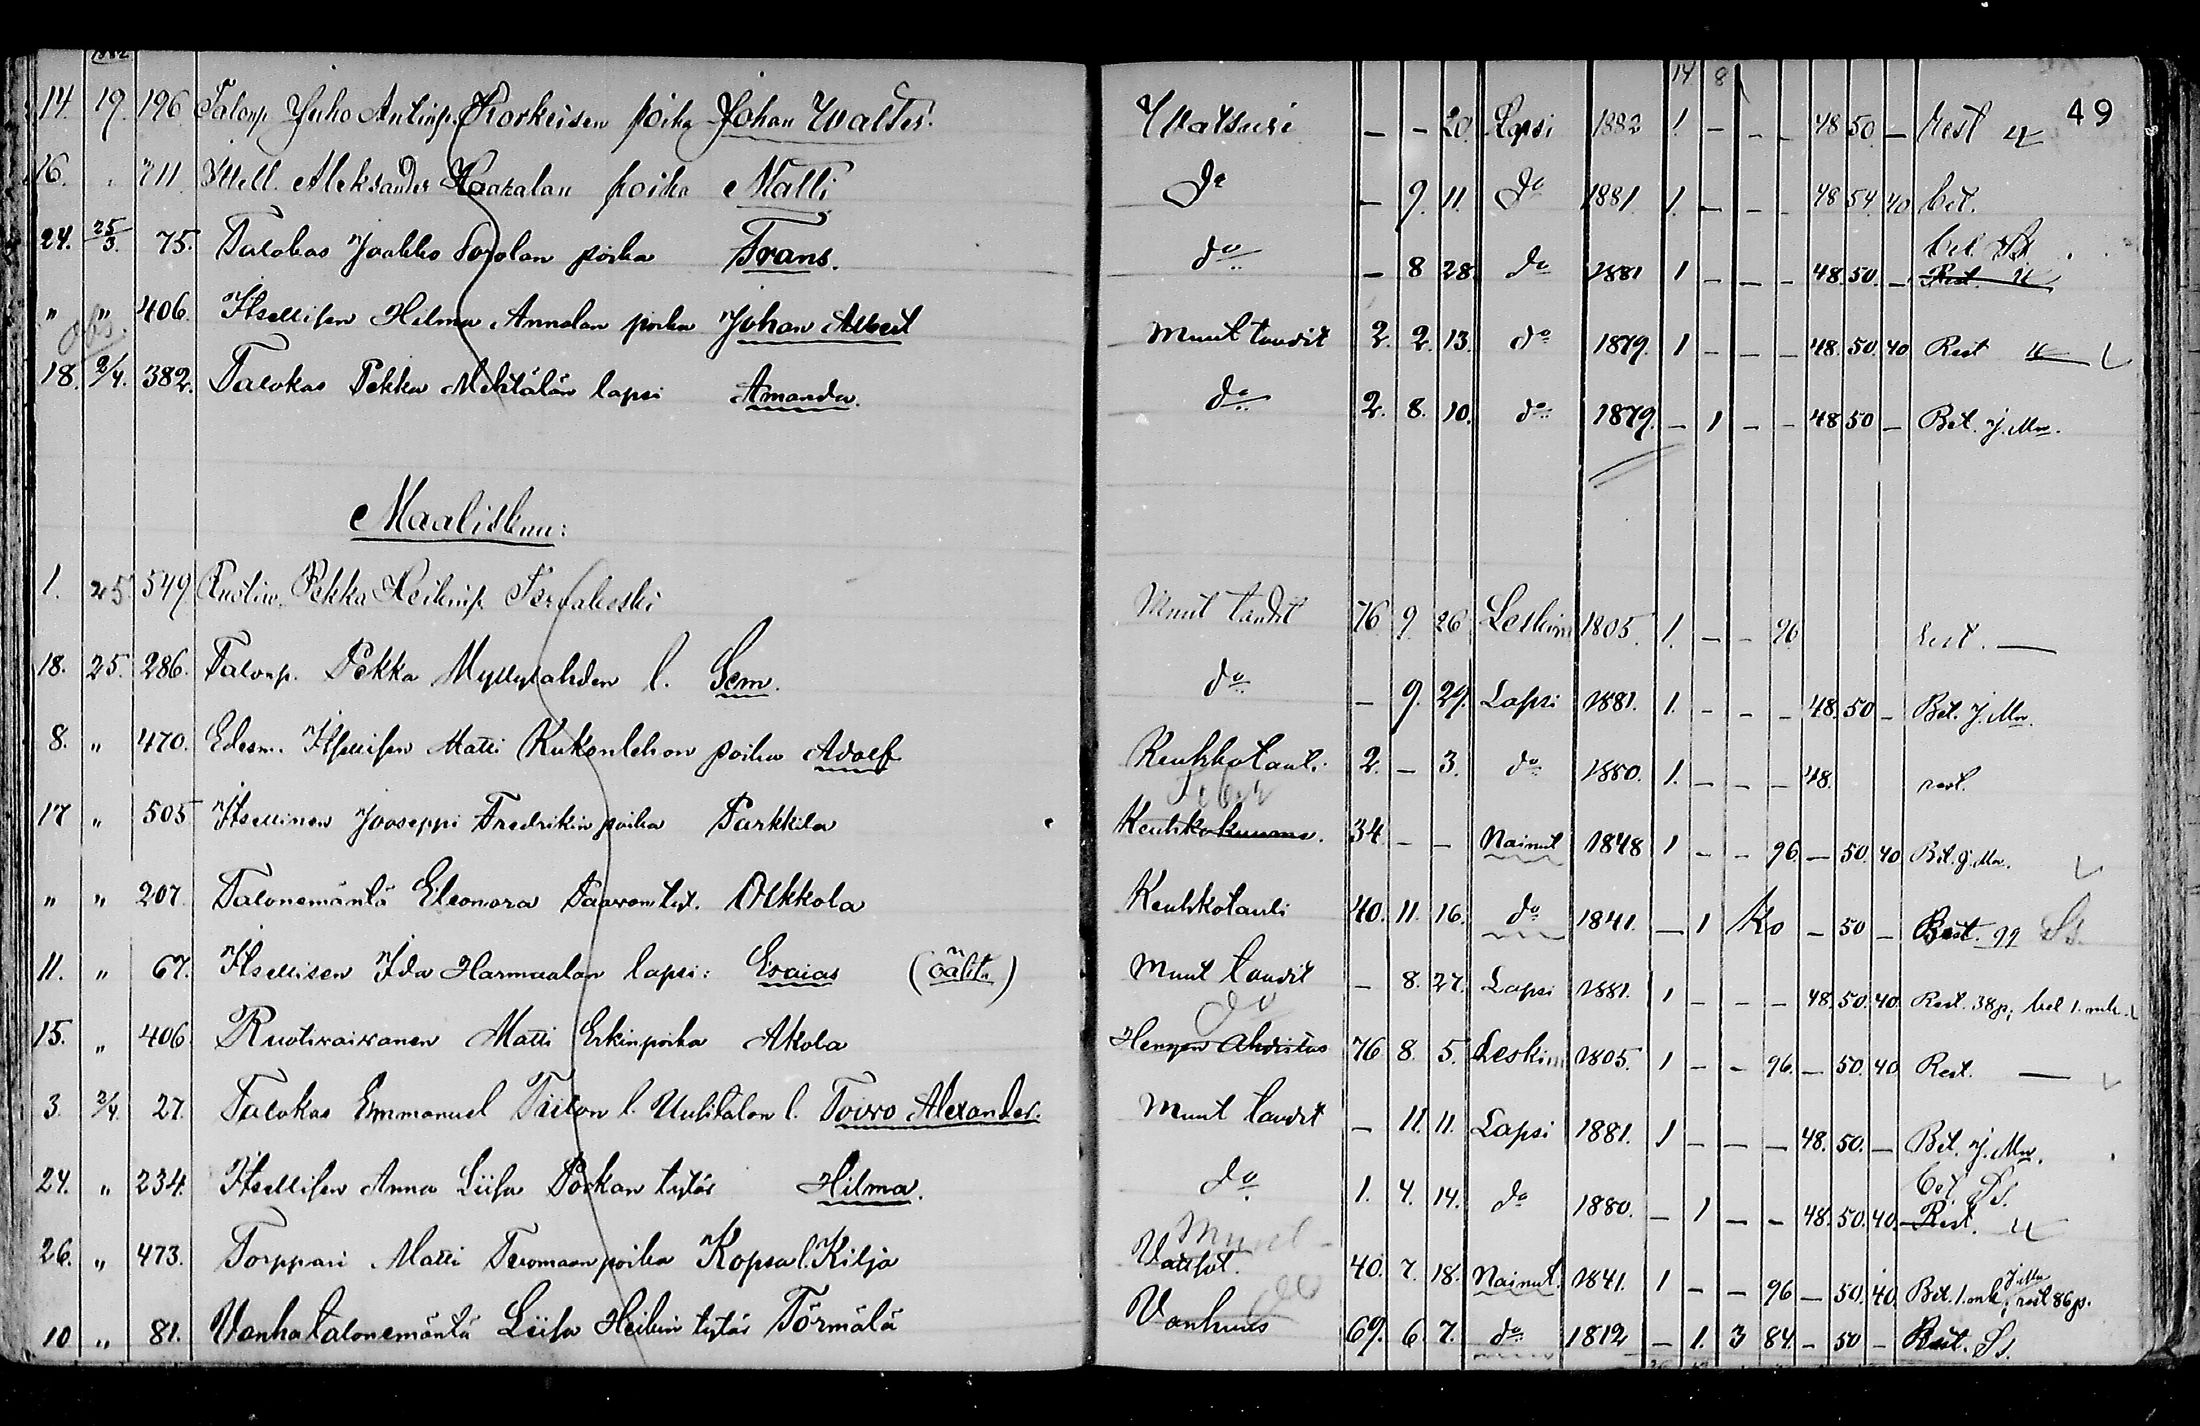 49
14 8
14. 19. 196 Talonp. Juho Antinp. Korkeisen poika Johan Walter. — — 20. Lapsi 1882 1. — — — 48 50 — Rest
16. " 711 Itsell. Aleksander Kaakalan poika Matti Do — 9. 11. Do 1881. 1. — — — 48 54. 40 bet.
24. 25/3. 75. Talokas Jaakko Topolan poika Frans. do — 8 28. do 1881 1 — — — 48. 50. — bet. Rest.
" " 406. Itsellisen Hilma Annalan poika Johan Albert Muut taudit 2. 2. 13. do 1879. 1 — — — 48. 50. 40 Rest
18. 2/4. 382. Talokas Pekka Mehtälän lapsi Amanda. do 2. 8. 10. do 1879. — 1 — — 48 50 — Bet. J. Mn.
Maaliskuu:
1. 25. 549 Ruotiw. Pekka Heikinp. Tervakoski Muut taudit 76 9 26 Leskim 1805. 1. — — 96. Rest. —
18. 25. 286. Talonp. Pekka Myllylahden l. Sem. do — 9. 29. Lapsi 1881. 1. — — — 48. 50 — Bet. J. Mn.
8. " 470. Edesm. Itsellisen Matti Kukonlehon poika Adolf Keuhkotauti. 2. — 3. do 1880. 1. — — — 48. rest.
17 " 505 Itsellinen Jooseppi Fredrikin poika Parkkila Keuhkokuume. 34. — — Nainut 1848 1 — — 96 — 50 40 Bet. J. Mn.
" " 207. Talonemäntä Eleonora Paavontyt. Olkkola Keuhkotauti 40. 11. 16. do 1841. — 1 Ko — 50 — Rest.
11. " 67. Itsellisen Ida Harmaalan lapsi: Esaias Muut taudit — 8. 27. Lapsi 1881. 1 — — — 48. 50. 40. Rest. 38 p; bet 1. mk.
15. " 406. Ruotivaivanen Matti Erkinpoika Akola do Hengen Ahdistus 76 8. 5. Leskim 1805. 1 — — 96. — 50. 40 Rest. —
3. 2/4. 27. Talokas Emmanuel Tiiton l. Uutitalon l. Toivo Alexander. Muut taudit — 11. 11. Lapsi 1881. 1 — — — 48. 50. — Bet. J. Mn.
24. " 234. Itsellisen Anna Liisa Porkan tytär Hilma. do 1. 4. 14. do 1880. — 1 — — 48. 50. 40. bet. Rest.
26. " 473. Torppari Matti Tuomaanpoika Kopsa l. Kilja Vatsat. 40. 7. 18. Nainut. 1841. 1 — — 96 — 50. 40. Bet. 1. mk, rest 86 p. J. Mn
10 " 81. Vanhatalonemäntä Liisa Heikin tytär Törmälä Vanhuus 69. 6. 7. do 1812 — 1. 3 84. — 50 — Rest.